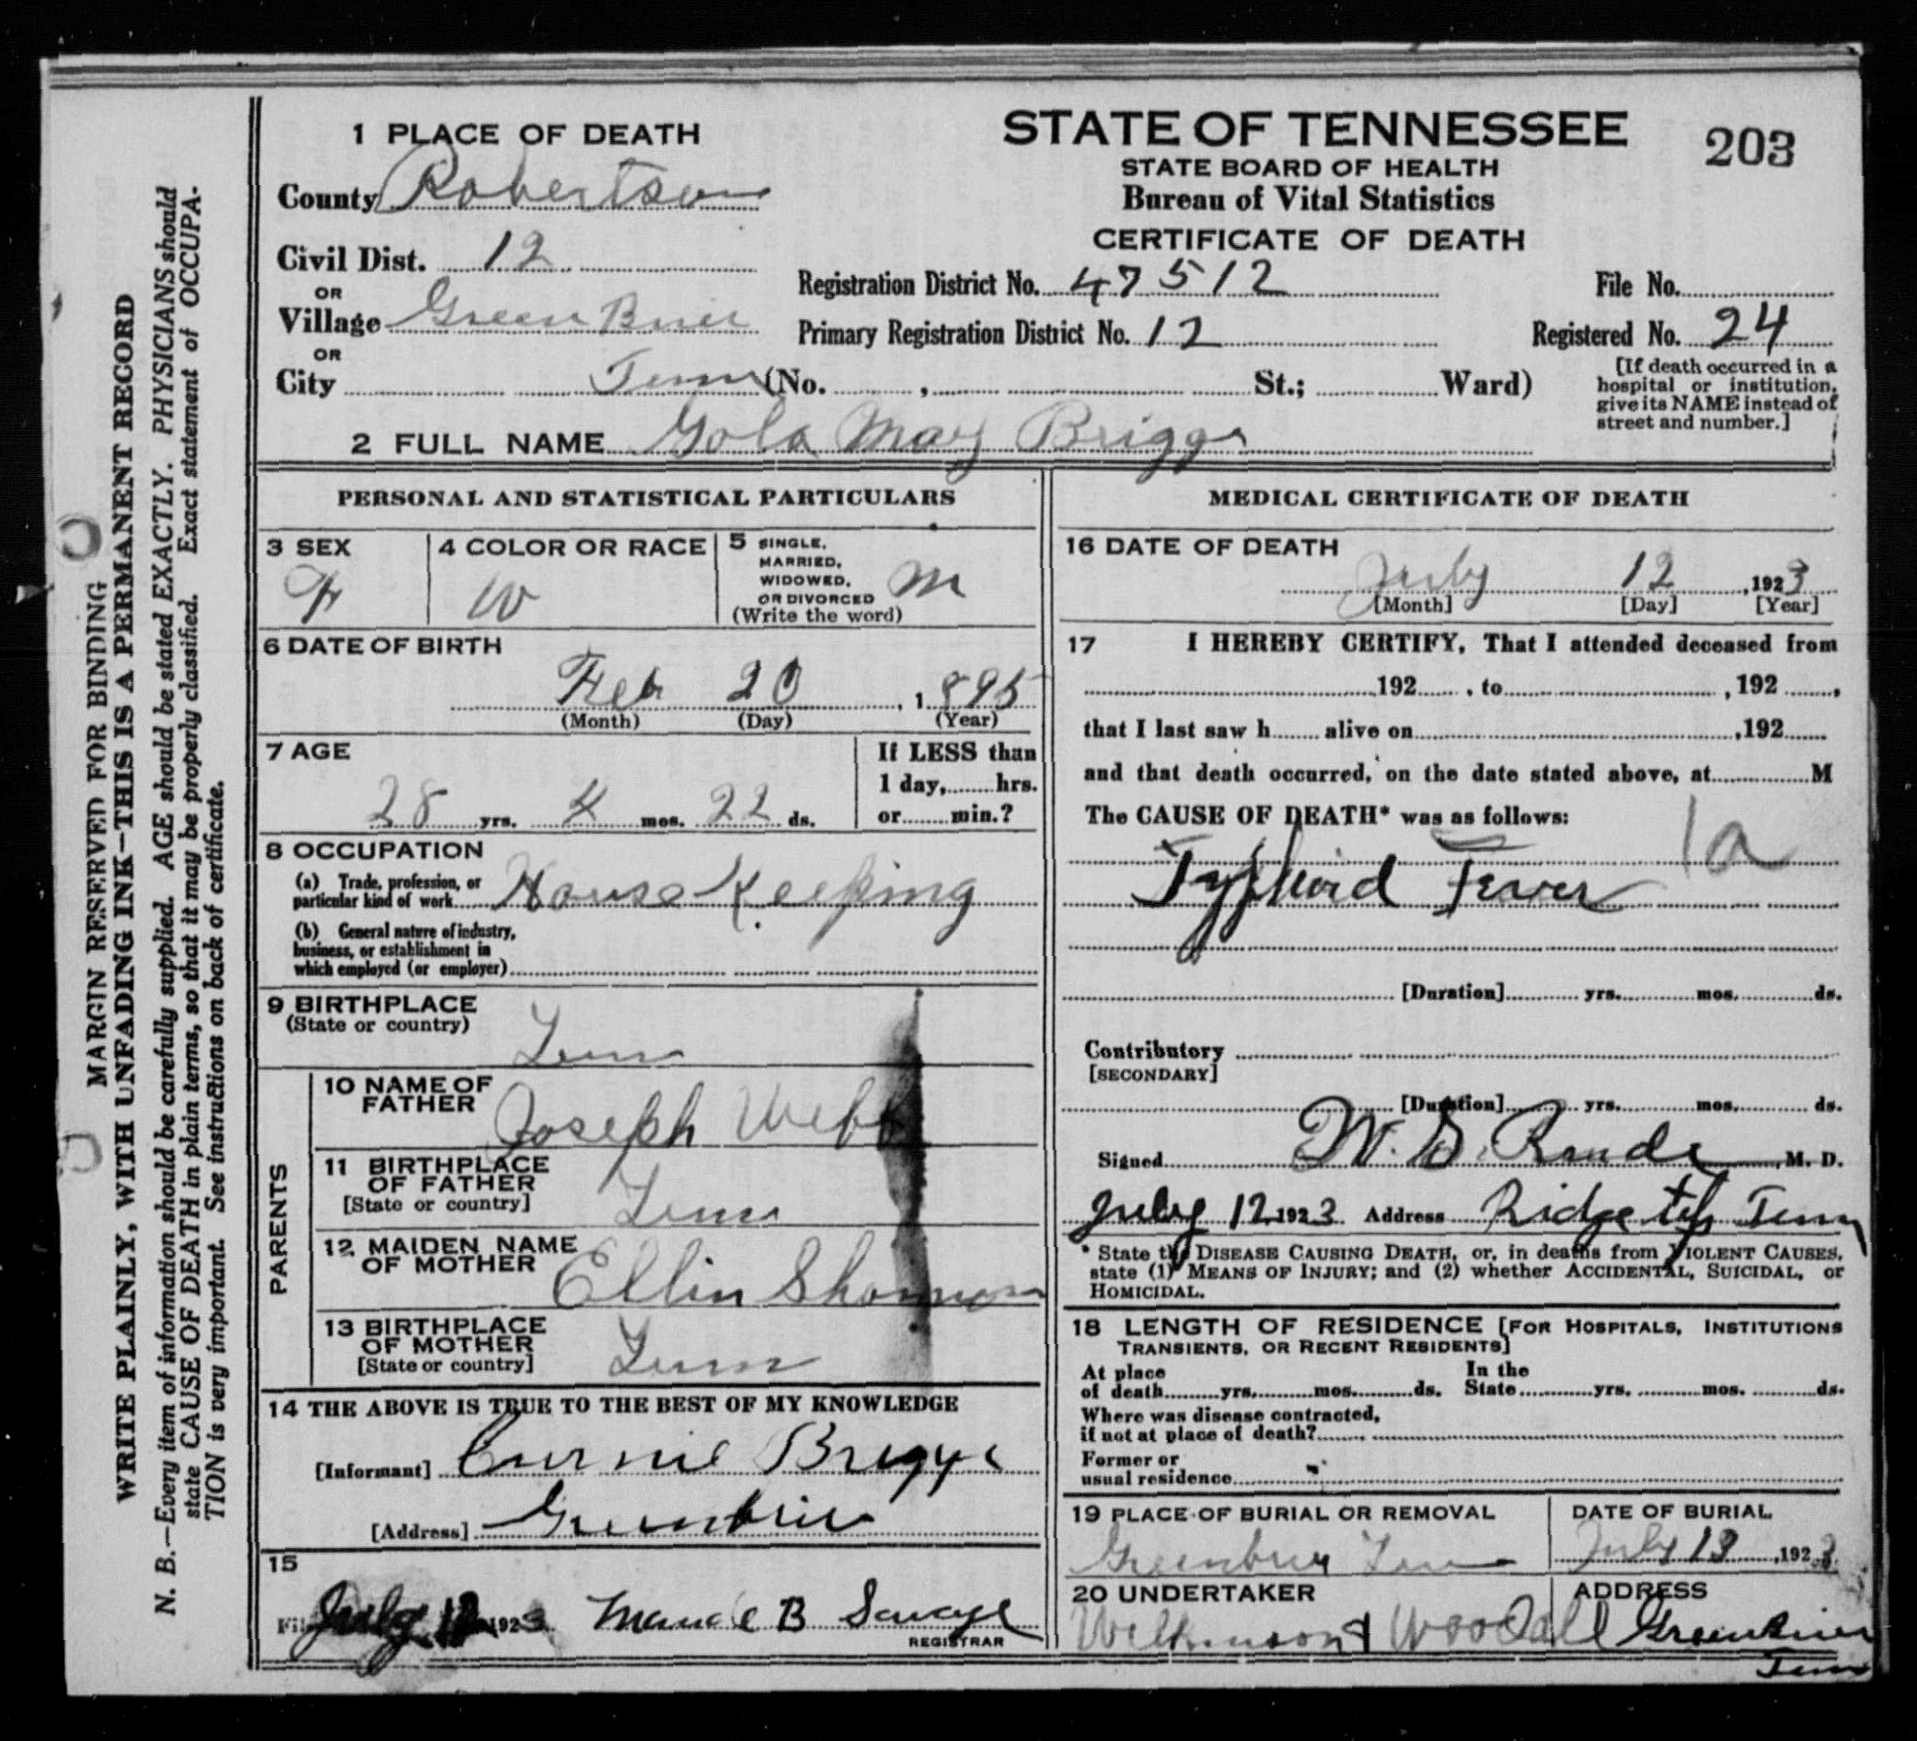 1 PLACE OF DEATH
County Robertson
Civil Dist. 12
OR
Village Green Brier
OR
City Tenn (No. , St.; Ward)
STATE OF TENNESSEE
STATE BOARD OF HEALTH
Bureau of Vital Statistics
CERTIFICATE OF DEATH
203
Registration District No. 47512
File No.
Primary Registration District No. 12
Registered No. 24
[If death occurred in a
hospital or institution,
give its NAME instead of
street and number.]
2 FULL NAME Gola May Briggs
PERSONAL AND STATISTICAL PARTICULARS
3 SEX
F
4 COLOR OR RACE
W
5 SINGLE,
MARRIED,
WIDOWED,
OR DIVORCED
(Write the word)
M
6 DATE OF BIRTH
Feb 20, 1895
(Month) (Day) (Year)
7 AGE
28 yrs. 4 mos. 22 ds.
If LESS than
1 day, hrs.
or min.?
8 OCCUPATION
(a) Trade, profession, or
particular kind of work House Keeping
(b) General nature of industry,
business, or establishment in
which employed (or employer)
9 BIRTHPLACE
(State or country)
Tenn
PARENTS
10 NAME OF
FATHER
Joseph Webb
11 BIRTHPLACE
OF FATHER
[State or country]
Tenn
12 MAIDEN NAME
OF MOTHER
Ellin Shannon
13 BIRTHPLACE
OF MOTHER
[State or country]
Tenn
14 THE ABOVE IS TRUE TO THE BEST OF MY KNOWLEDGE
[Informant] Briggs
[Address] Greenbrier
15
July 1923 B Savage
REGISTRAR
MEDICAL CERTIFICATE OF DEATH
16 DATE OF DEATH
July 12, 1923
[Month] [Day] [Year]
17 I HEREBY CERTIFY, That I attended deceased from
192 , to , 192 ,
that I last saw h alive on ,192
and that death occurred, on the date stated above, at M
The CAUSE OF DEATH* was as follows:
1a
Typhoid Fever
[Duration] yrs. mos. ds.
Contributory
[SECONDARY]
[Duration] yrs. mos. ds.
Signed W. S. Rude, M. D.
July 12 1923 Address Ridgetop Tenn
* State the DISEASE CAUSING DEATH, or, in deaths from VIOLENT CAUSES,
state (1) MEANS OF INJURY; and (2) whether ACCIDENTAL, SUICIDAL, or
HOMICIDAL.
18 LENGTH OF RESIDENCE [FOR HOSPITALS, INSTITUTIONS
TRANSIENTS, OR RECENT RESIDENTS]
At place
of death yrs. mos. ds.
In the
State yrs. mos. ds.
Where was disease contracted,
if not at place of death?
Former or
usual residence
19 PLACE OF BURIAL OR REMOVAL
Greenbrier Tenn
DATE OF BURIAL
July 13, 1923
20 UNDERTAKER
Wilkinson & Woodall
ADDRESS
Greenbrier
Tenn
MARGIN RESERVED FOR BINDING
WRITE PLAINLY, WITH UNFADING INK—THIS IS A PERMANENT RECORD
N. B.—Every item of information should be carefully supplied. AGE should be stated EXACTLY. PHYSICIANS should
state CAUSE OF DEATH in plain terms, so that it may be properly classified. Exact statement of OCCUPA-
TION is very important. See instructions on back of certificate.